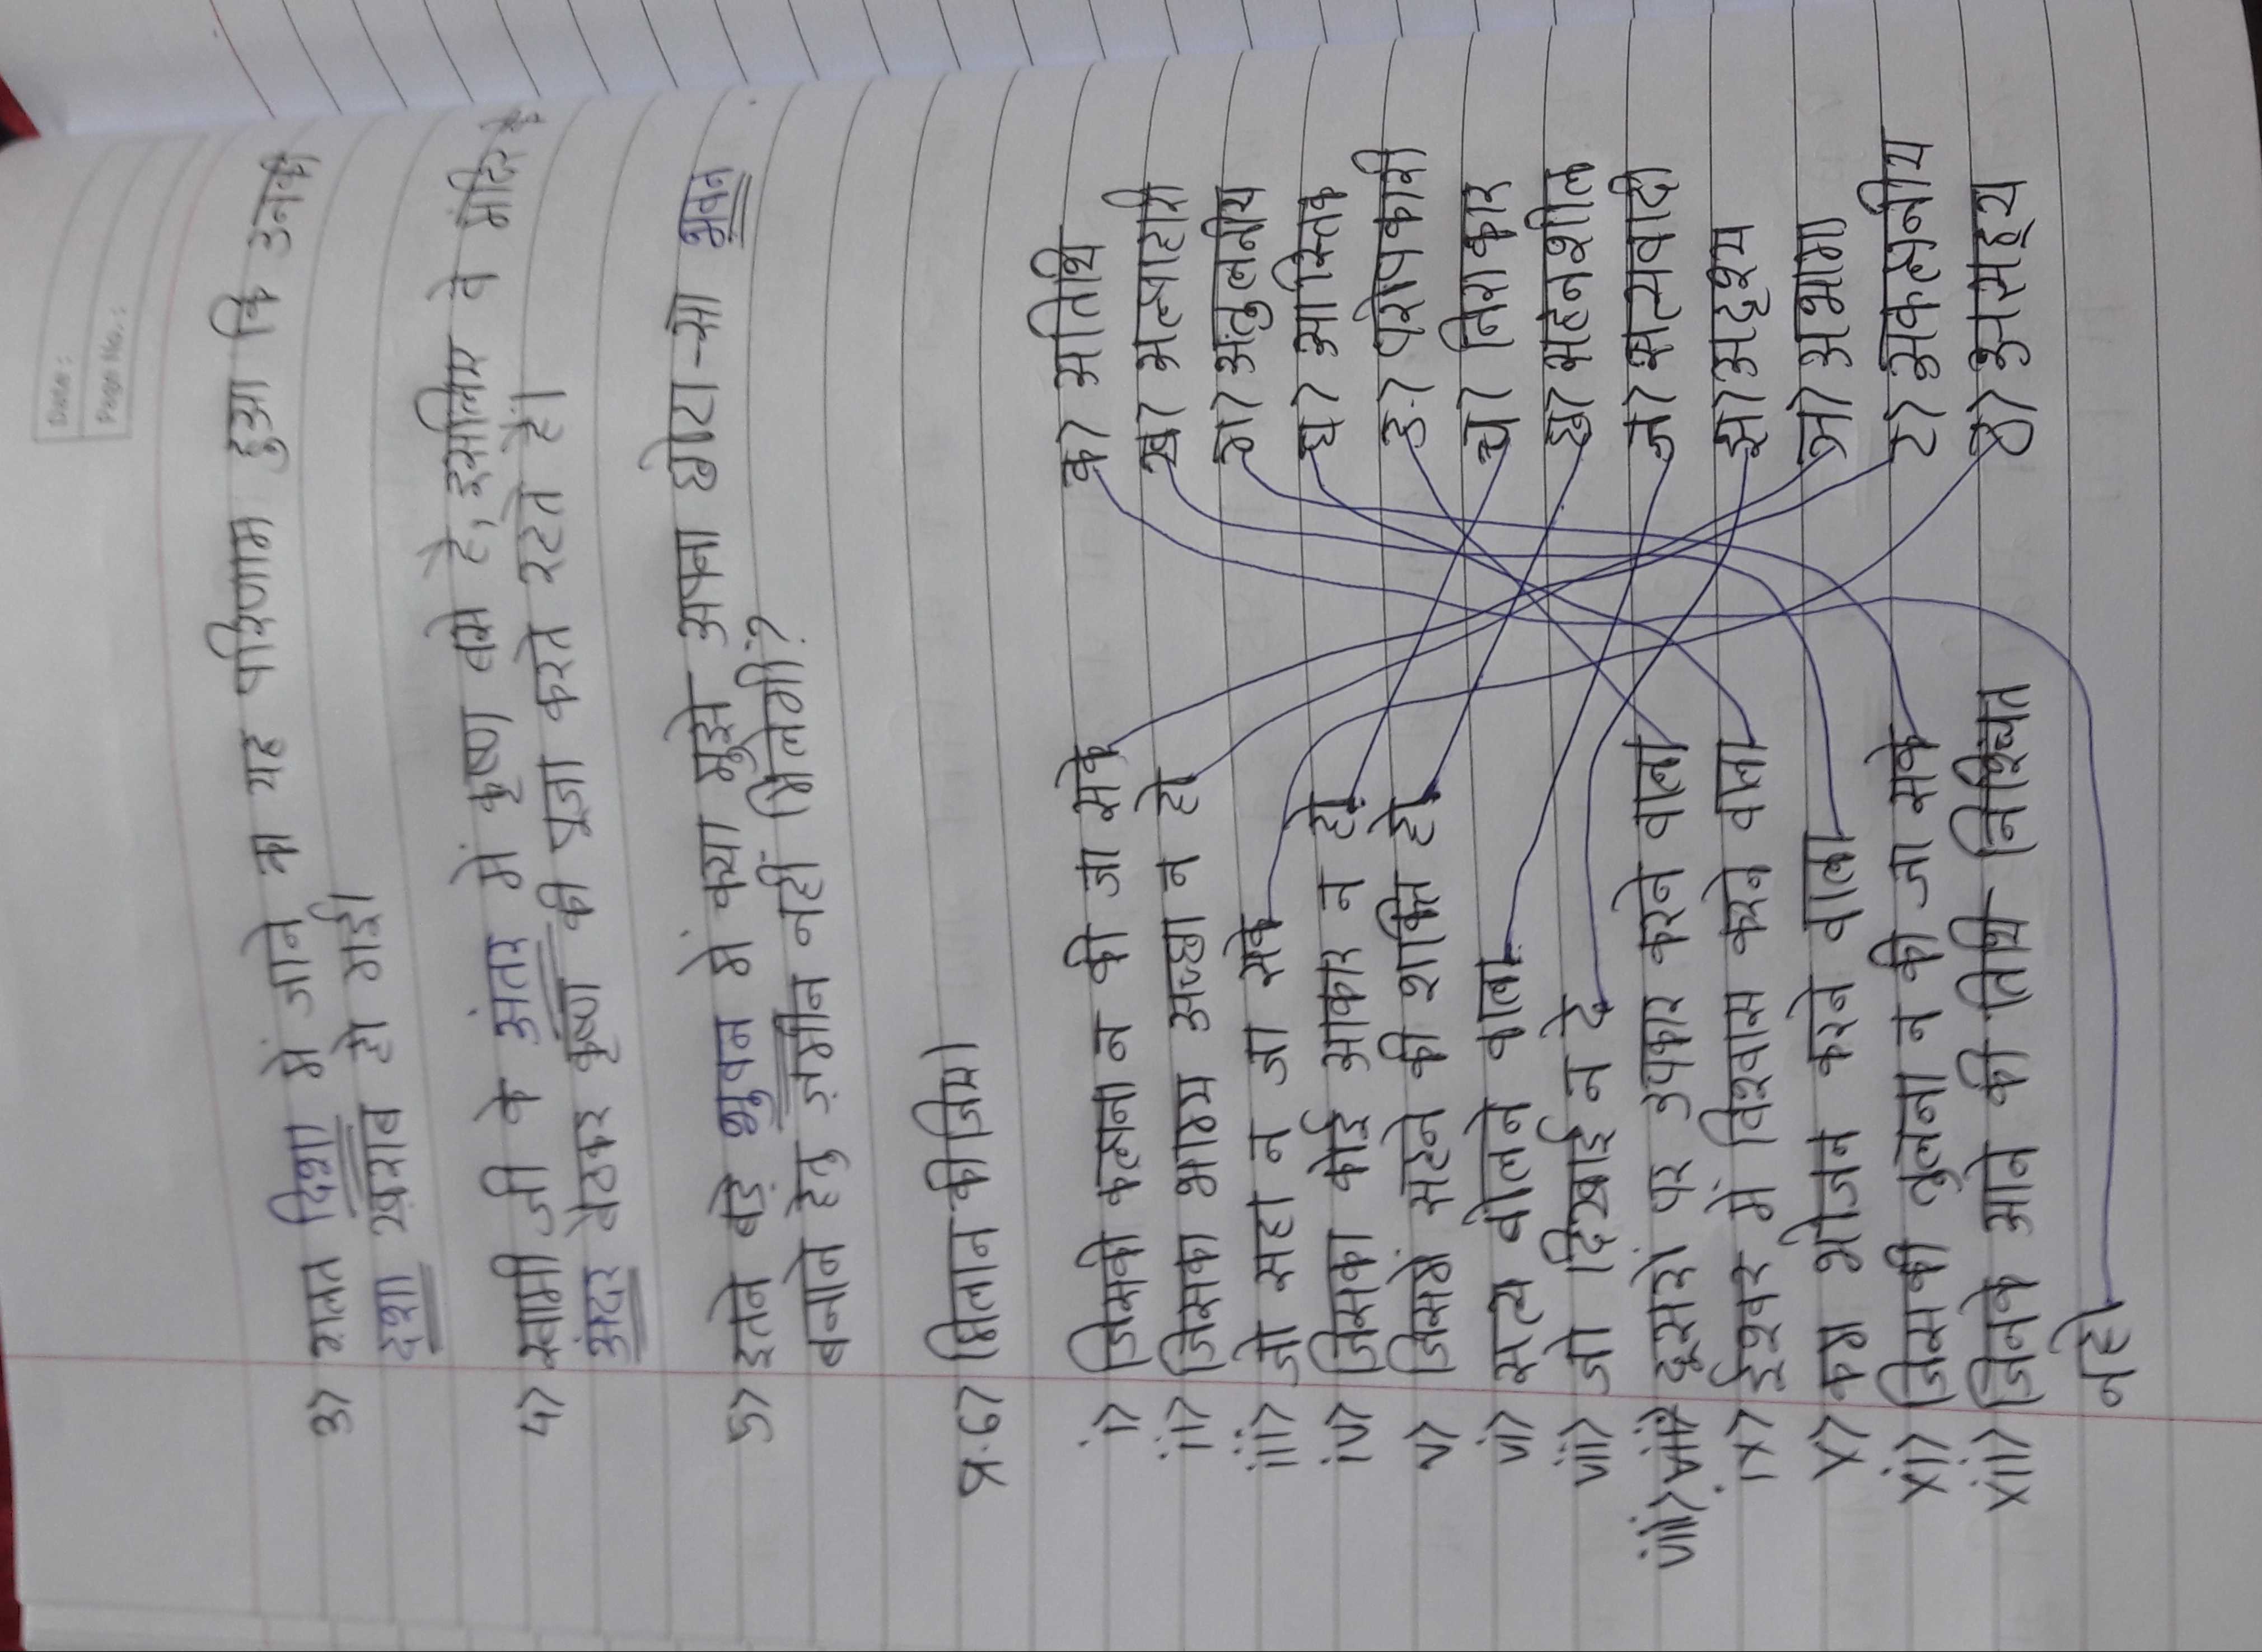 Date :
Page No. :
3) गलत दिशा में जाने का यह परिणाम हुआ कि उनकी
दशा ख़राब हो गई।
4) स्वामी जी के अंतर में कृष्ण बसे है, इसलिए वे मंदिर के
अंदर बैठकर कृष्ण की पूजा करते रटते हैं।
5) इतने बड़े भुवन में क्या मुझे अपना छोटा-सा भवन
बनाने हेतु ज़मीन नहीं मिलेगी?
प्र.6) मिलान कीजिए।
i) जिसकी कल्पना न की जा सके क) अतिथि
ii) जिसका भाग्य अच्छा न हो ख) अल्पाहारी
iii) जो सहा न जा सके ग) अतुलनीय
iv) जिसका कोई आकार न हो घ) आस्तिक
v) जिसमें सहने की शक्ति हो ङ) परोपकारी
vi) सत्य बोलने वाला च) निराकार
vii) जो दिखाई न दे छ) सहनशील
viii) दूसरों पर उपकार करने वाला ज) सत्यवादी
ix) ईश्वर में विश्वास करने वाला झ) अदृश्य
x) कम भोजन करने वाला ञ) अभागा
xi) जिसकी तुलना न की जा सके ट) अकल्पनीय
xii) जिनके आने की तिथि निश्चित ठ) असह्य
न हो